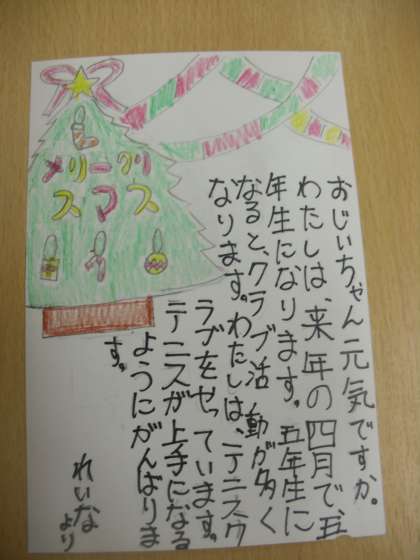 メリークリ
スマス
おじいちゃん元気ですか。
わたしは、来年の四月で、五
年生になります。五年生に
なると、クラブ活動が多く
なります。わたしは、テニスク
ラブをやっています。
テニスが上手になる
ようにがんばりま
す。
れいな
より